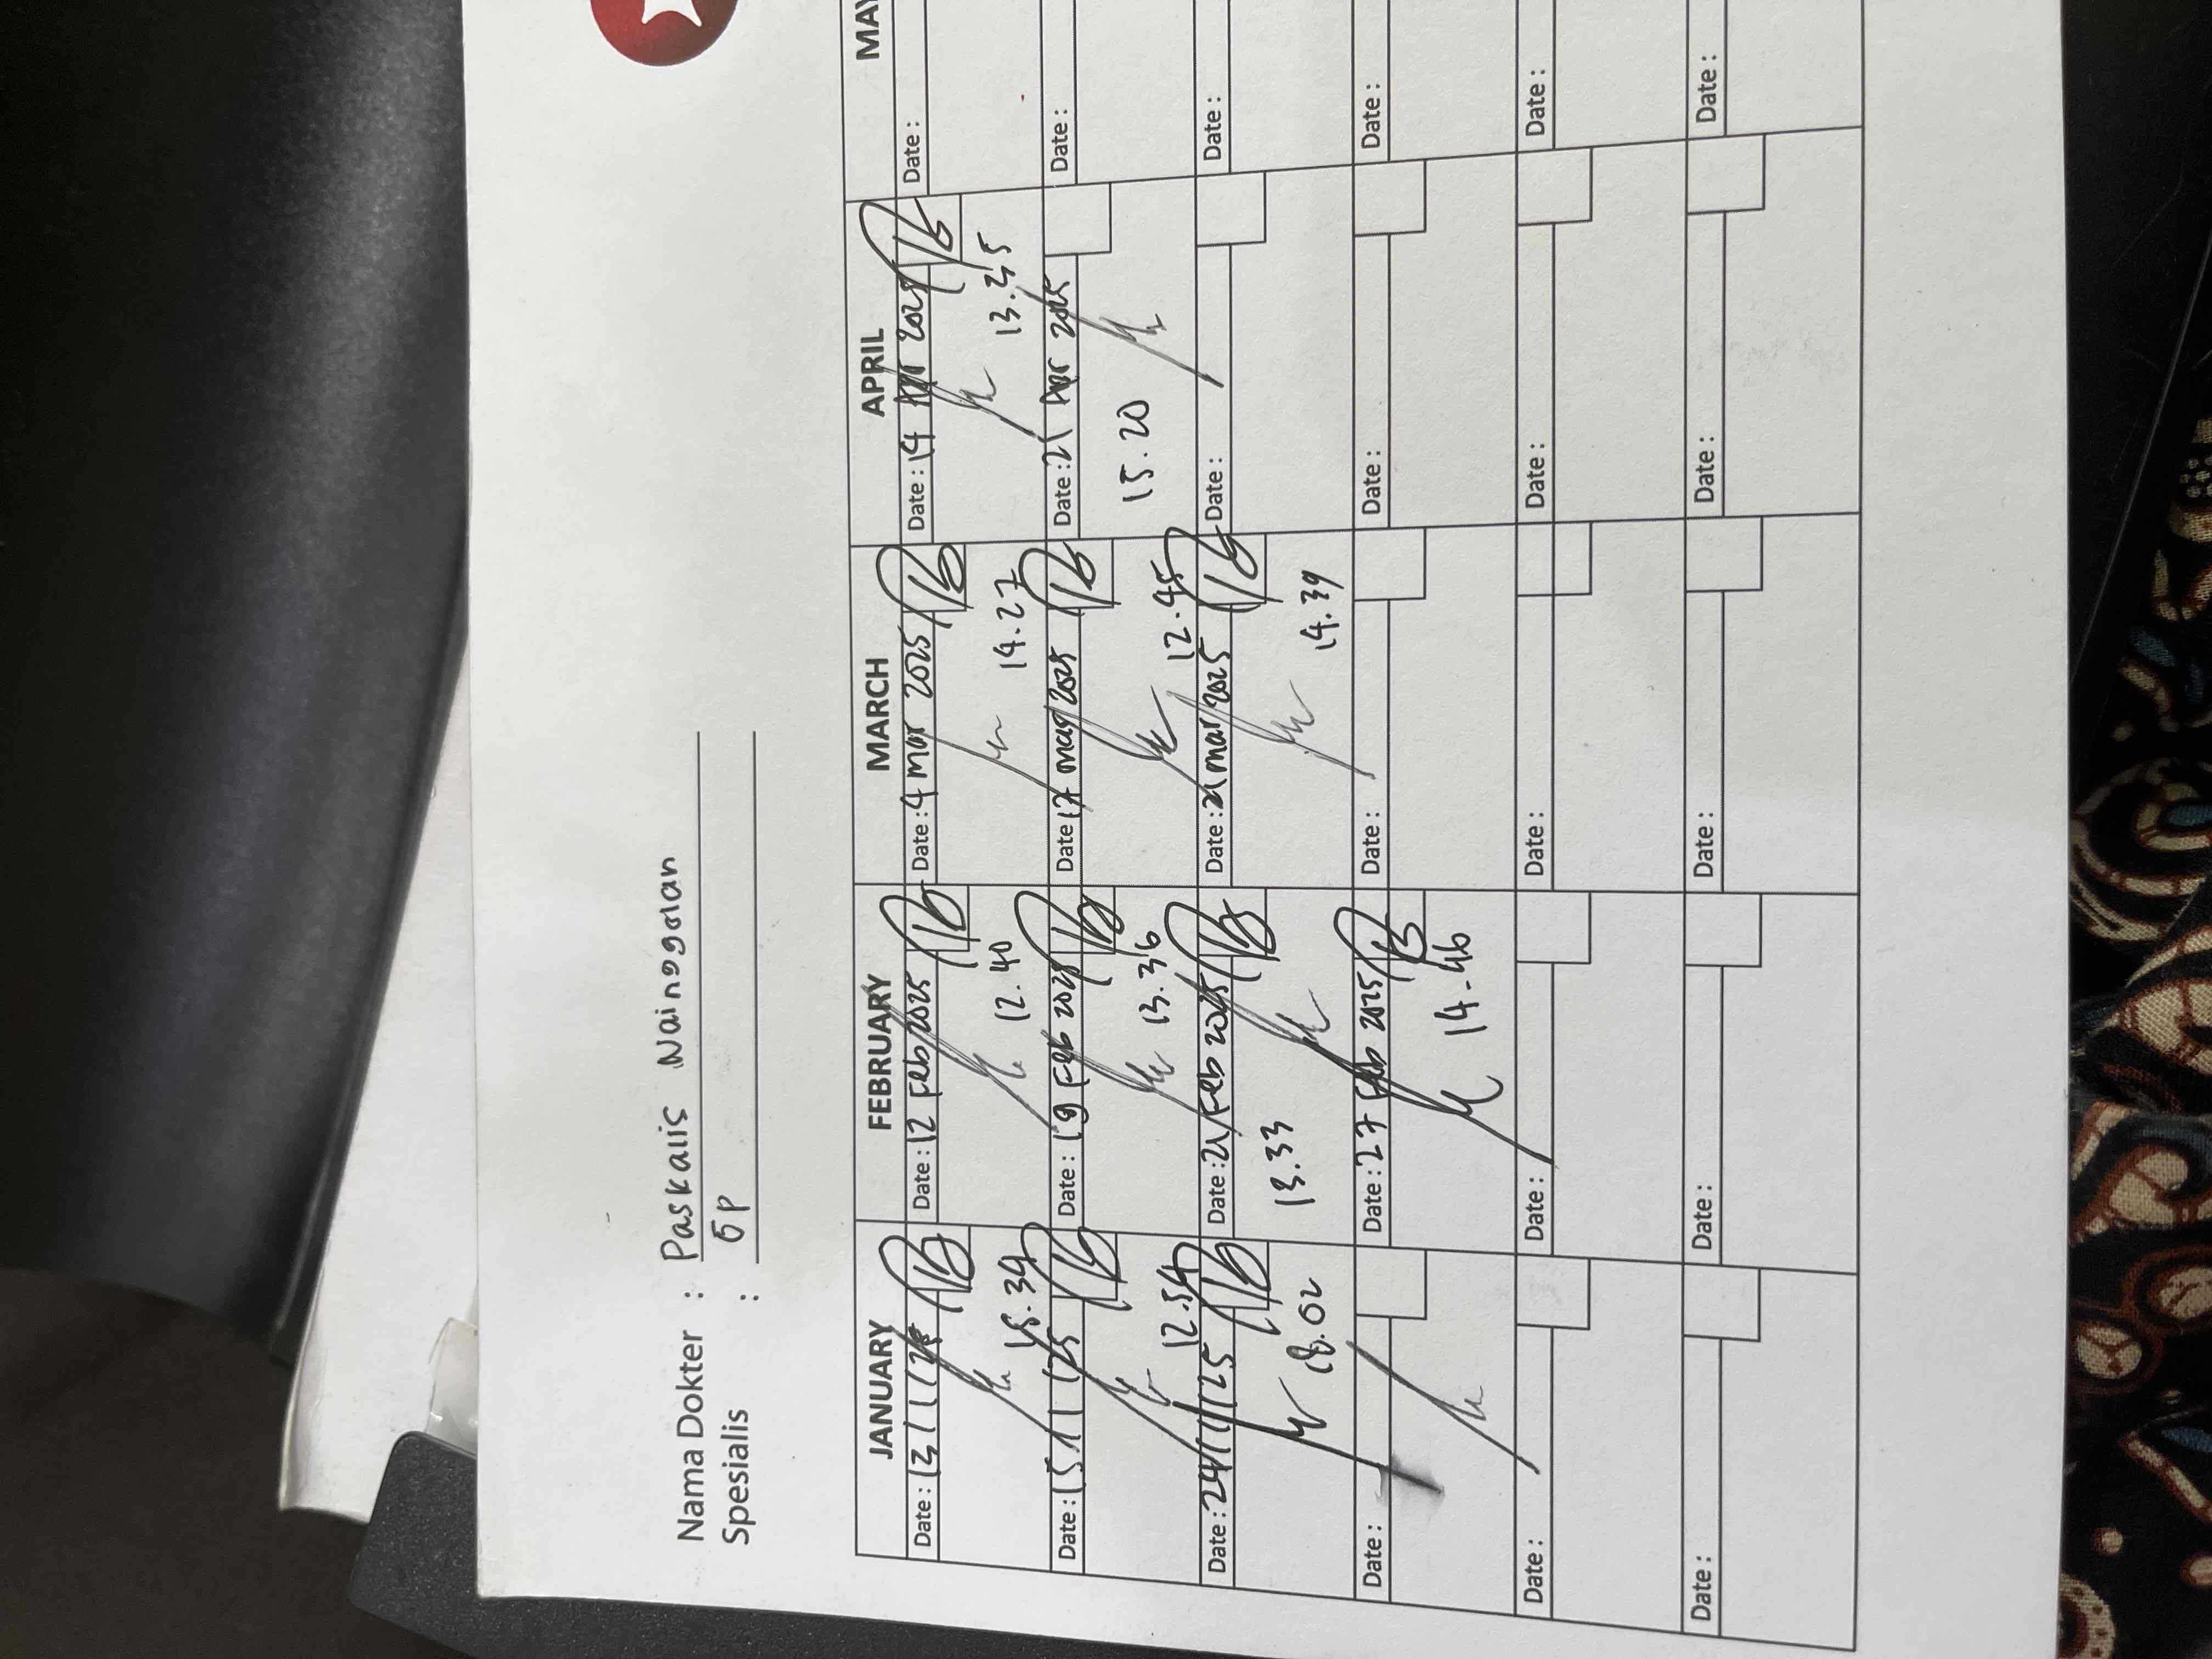 Nama Dokter : Paskalis Nainggolan
Spesialis : GP
JANUARY FEBRUARY MARCH APRIL MAY
Date : 13/1/25 Date : 12 Feb 2025 Date : 4 mar 2025 Date : 14 Apr 2025 Date :
15.34 12.40 14.27 13.25
Date : 15/1/25 Date : 19 Feb 2025 Date : 17 mar 2025 Date : 21 Apr 2025 Date :
12.54 13.36 12.45 15.20
Date : 24/1/25 Date : 21 Feb 2025 Date : 21 mar 2025 Date : Date :
18.02 13.33 14.39
Date : Date : 27 Feb 2025 Date : Date : Date :
14.46
Date : Date : Date : Date : Date :
Date : Date : Date : Date : Date :